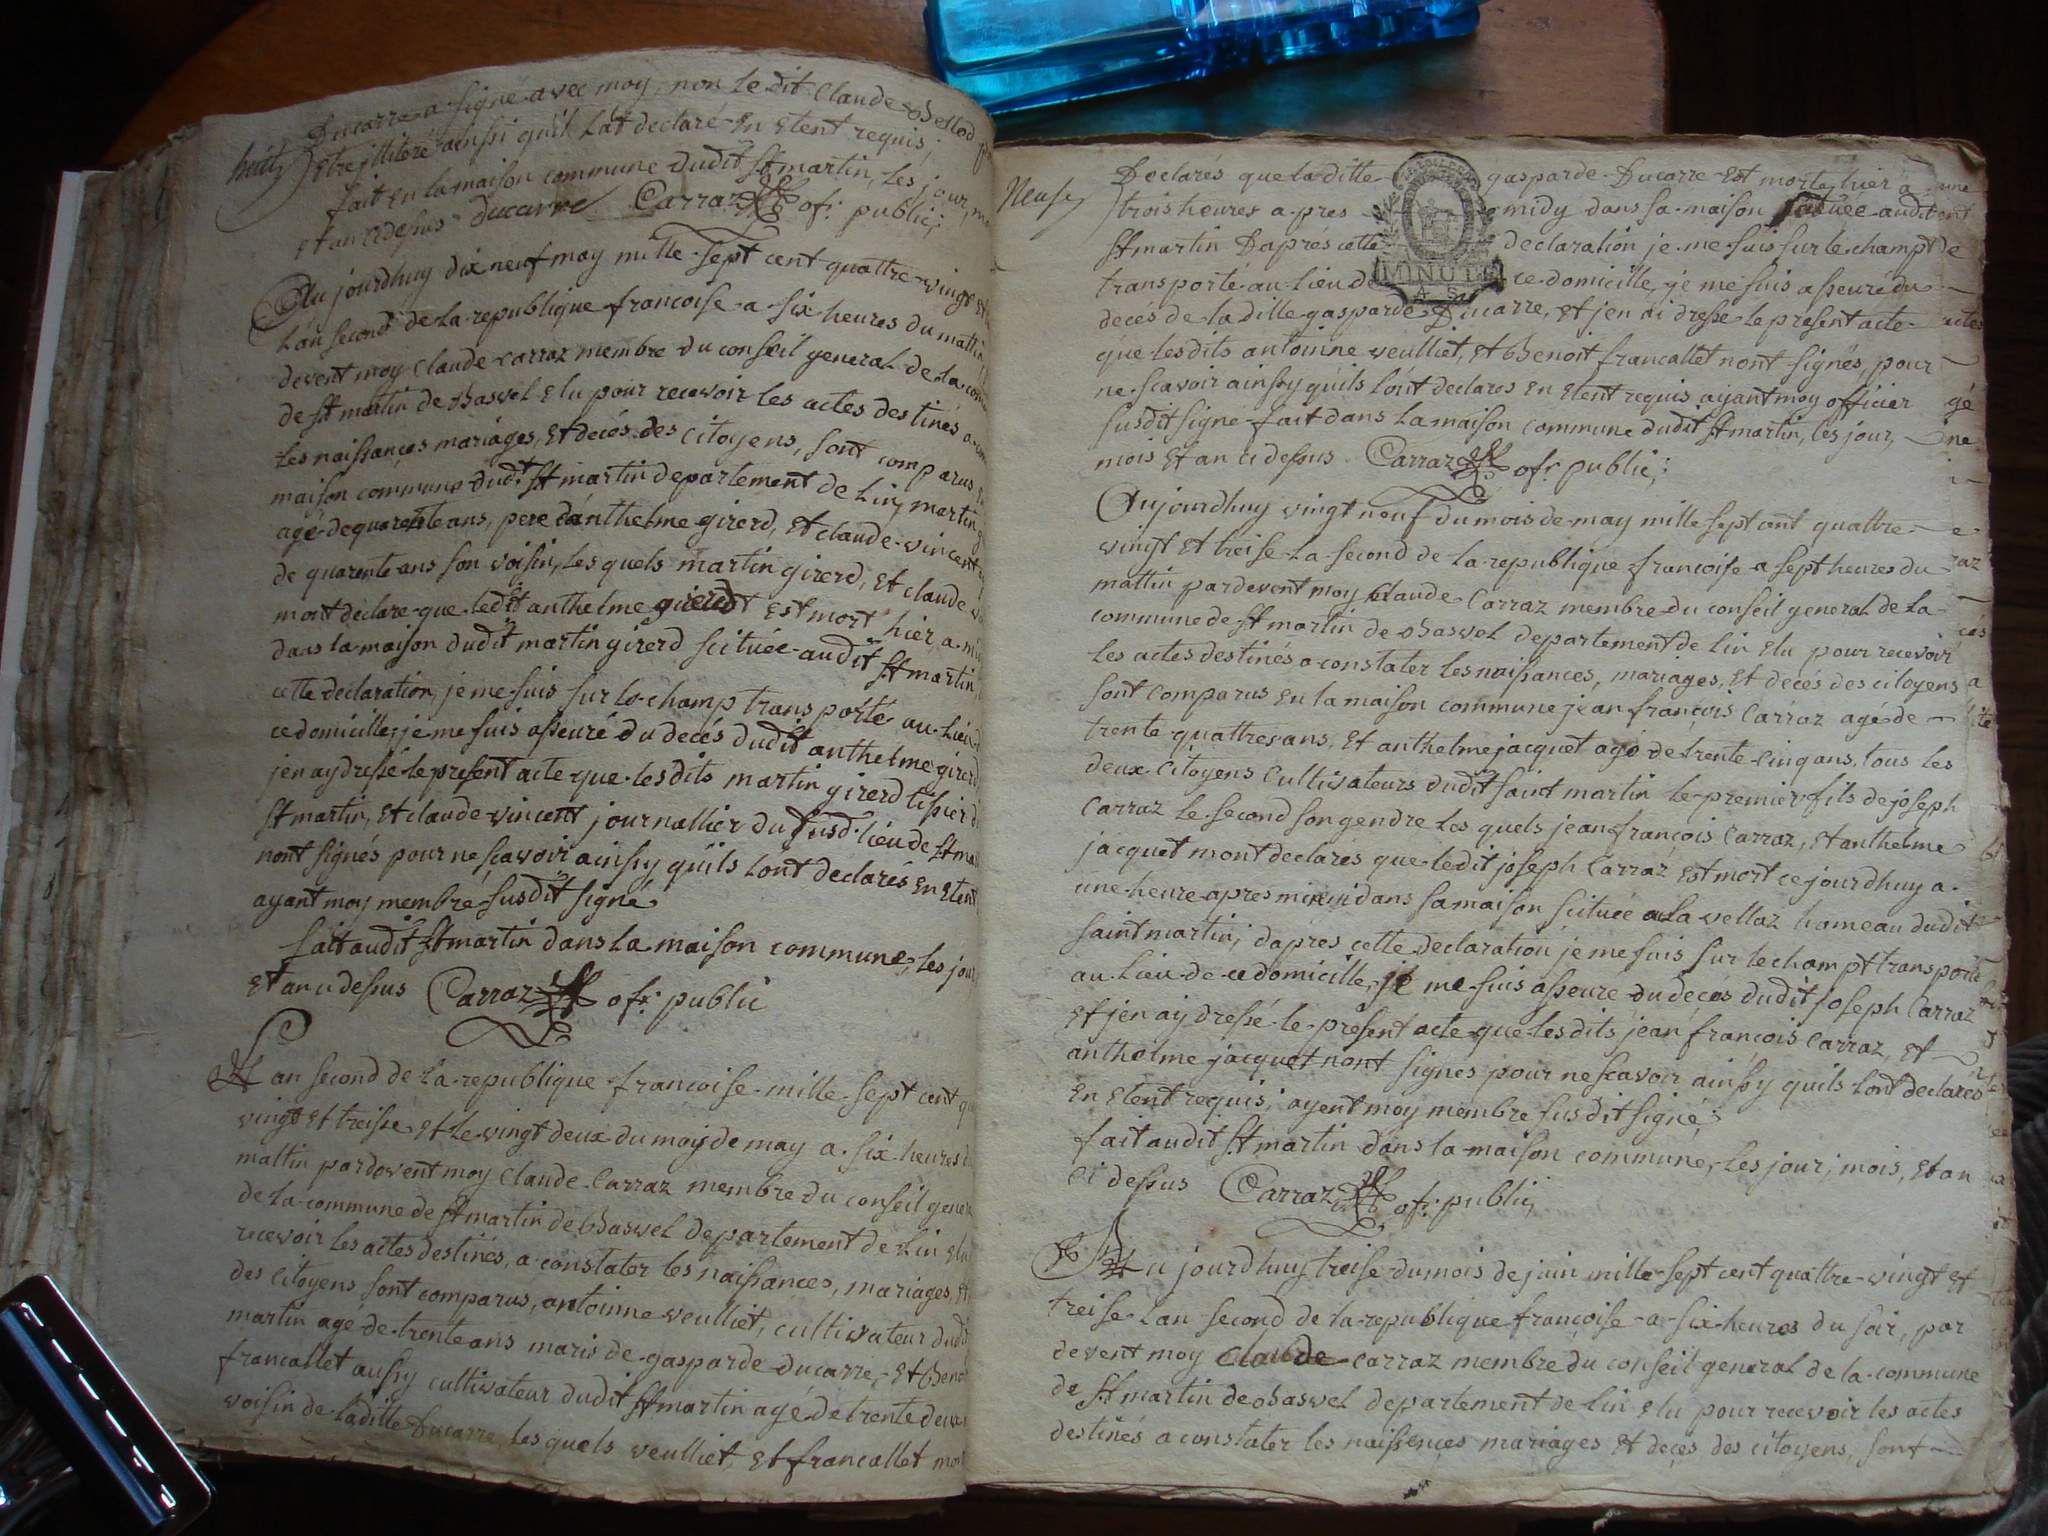 Ducarre a signé avec moy, non ledit Claude
huitz
être jllitéré ainssi quil lat declaré en etent requis;
fait en la maison commune dudit st martin, les jour,
et an cidessus ducarre Carraz ofr. public;
Au jourdhuy dix neuf may mille sept cent quattre vingt
Lan second de La republique francoise a six heures du mattin
devent moy Claude Carraz membre du conseil general de La
de st martin de Bavel elu pour recevoir les actes destinés a
les naissances mariages, et decés des citoyens, sont comparus
maison commune dudt. st martin departement de Lin, martin
agé de quarente ans, pere danthelme girerd, et claude vincent
de quarente ans son voisin, les quels martin girerd, et claude
mont declaré que ledit anthelme girerd est mort hier, a
dans la maison dudit martin girerd scituée audit st martin,
cette declaration, je me suis sur le champ transporté au Lieu
ce domicille, je me suis asseuré du decés dudit anthelme girerd
jen ay dressé le present acte que lesdits martin girerd tissier
st martin, et claude vincent journallier du susd. lieu de st
nont signés pour ne scavoir ainssy quils Lont declarés en etent
ayant moy membre susdit signé
fait audit st martin dans La maison commune, les jour
et an ci dessus Carraz ofr. public
Lan second de La republique francoise mille sept cent
vingt et treisse et le vingt deux du mois de may a six heures
mattin pardevent moy Claude Carraz membre du conseil
de La commune de st martin de Bavel departement de Lin elu
recevoir les actes destinés, a constater les naissances, mariages, et
des citoyens sont comparus, antoinne veulliet, cultivateur
martin agé de trente ans maris de gasparde ducarre, et
francallet aussy cultivateur dudit st martin agé de trente deux
voisin de laditte Ducarre, les quels veulliet, et francallet
Neufz
Declarés que laditte gasparde Ducarre est morte hier a
trois heures apres midy dans sa maison scituée audit
st martin Daprés cette declaration je me suis sur le champt
transporté au Lieu de ce domicille, je me suis asseuré du
MINUTE
decés de laditte gasparde Ducarre, et jen ai dressé le present acte
que lesdits antoinne veulliet, et Benoit francallet nont signés, pour
ne scavoir ainssy quils lont declarés en etent requis ayant moy officier
susdit signé fait dans La maison commune dudit st martin, les jour,
mois et an ci dessus Carraz ofr. public;
Aujourdhuy vingt neuf du mois de may mille sept cent quattre
vingt et treise La second de la republique francoise a sept heures du
mattin pardevent moy Claude Carraz membre du conseil general de La
commune de st martin de Bavel departement de Lin elu pour recevoir
les actes destinés a constater les naissances, mariages, et decés des citoyens
sont comparus en la maison commune jean francois Carraz agé de
trente quattres ans, et anthelme jacquet agé de trente cinq ans, tous les
deux citoyens Cultivateurs dudit saint martin le premier fils de joseph
Carraz le second son gendre les quels jean francois Carraz, et anthelme
jacquet mont declarés que ledit joseph Carraz est mort ce jourdhuy a
une heure apres minuit dans sa maison scituée a La vellaz hameau dudit
saint martin; daprés cette declaration je me suis sur le champt transporté
au Lieu de ce domicille, je me suis asseuré du decés dudit joseph Carraz
et jen ay dressé le present acte que lesdits jean francois Carraz, et
anthelme jacquet nont signés pour ne scavoir ainssy quils Lont declarés
en etent requis; ayent moy membre susdit signé;
fait audit st martin dans la maison commune, les jour, mois, et an
ci dessus Carraz ofr. public;
Au jourdhuy treise du mois de juin mille sept cent quattre vingt et
treise Lan second de la republique francoise a six heures du soir, par
devent moy Claude Carraz membre du conseil general de la commune
de st martin de Bavel departement de Lin elu pour recevoir les actes
destinés a constater les naissences mariages et decés des citoyens, sont